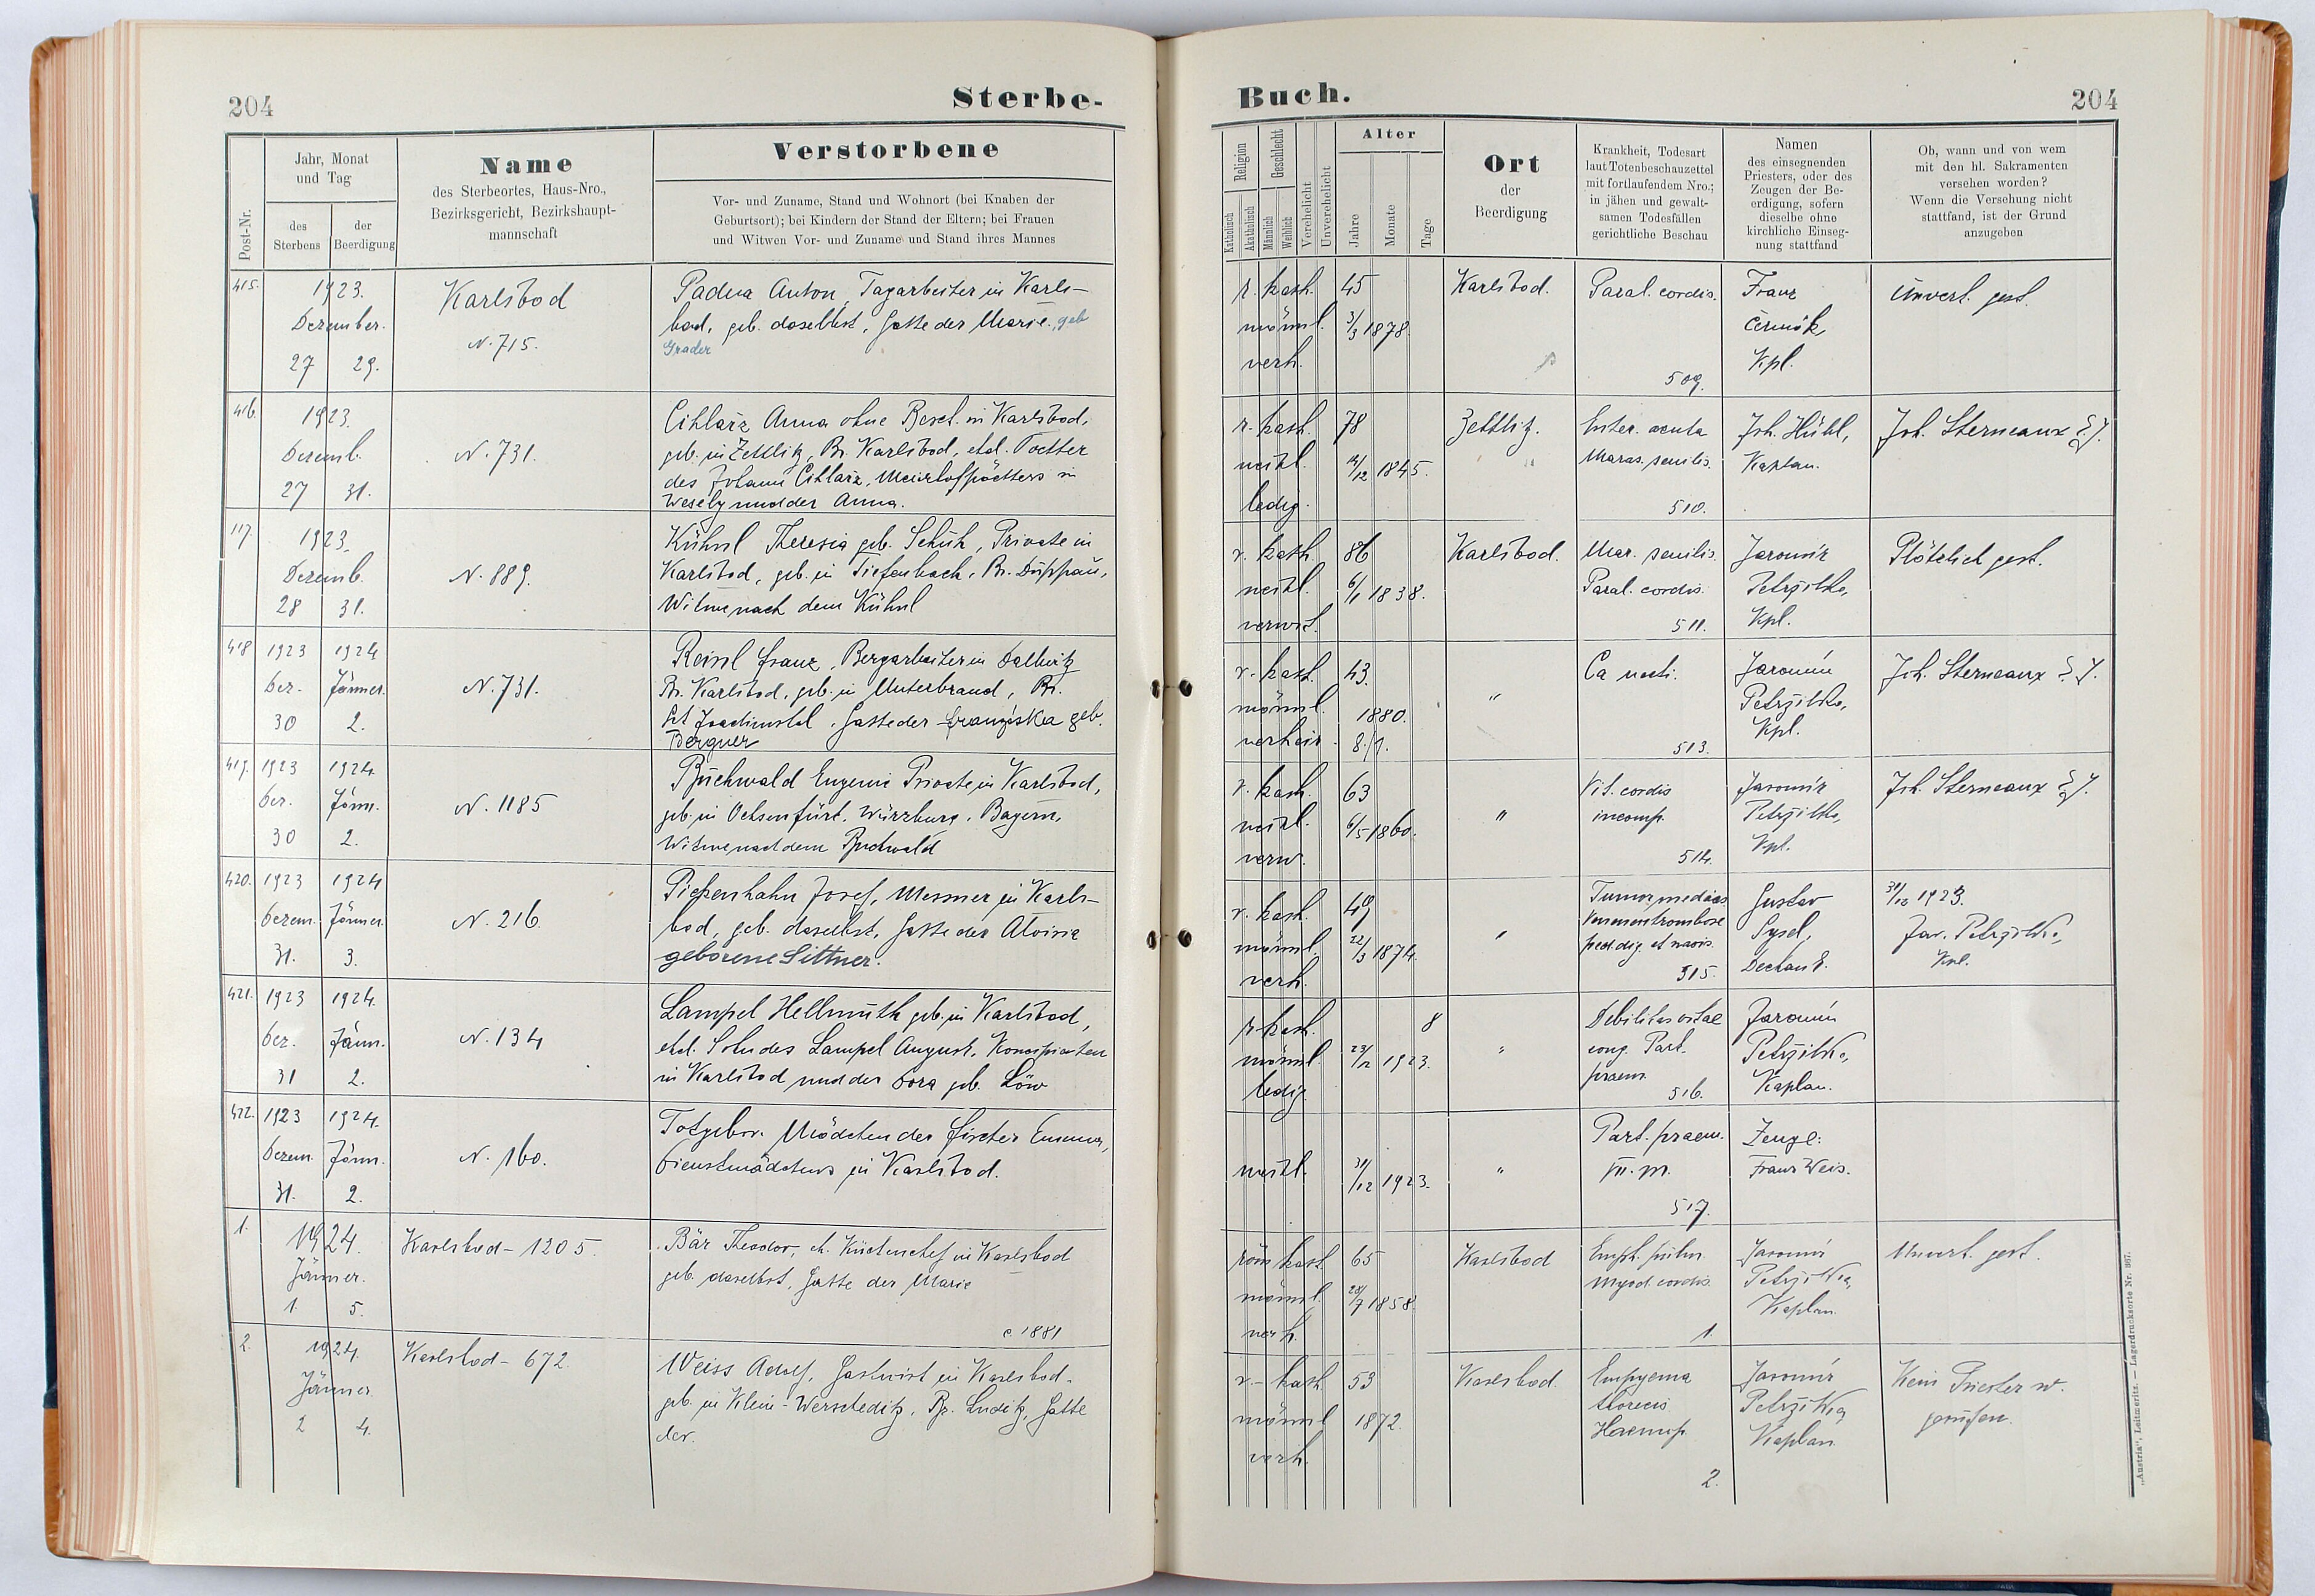 204
Sterbe-
Post-Nr.
Jahr, Monat
und Tag
des
Sterbens
der
Beerdigung
Name
des Sterbeortes, Haus-Nro.,
Bezirksgericht, Bezirkshaupt-
mannschaft
Verstorbene
Vor- und Zuname, Stand und Wohnort (bei Knaben der
Geburtsort); bei Kindern der Stand der Eltern; bei Frauen
und Witwen Vor- und Zuname und Stand ihres Mannes
415.
1923.
Dezember.
27 29.
Karlsbad
N. 715.
Padua Anton, Tagarbeiter in Karls-
bad, geb. daselbst, Gatte der Marie, geb
Grader
416.
1923.
Dezemb.
27 31.
N. 731.
Cihlarz Anna ohne Besch. in Karlsbad,
geb. in Zettlitz, Bz. Karlsbad, ehel. Tochter
des Johann Cihlarz, Meierhofpächters in
Wesely und der Anna.
117.
1923.
Dezemb.
28 31.
N. 889.
Kühnl Theresia geb. Schuh, Private in
Karlsbad, geb. in Tiefenbach, Bz. Duppau,
Witwe nach dem Kühnl
418
1923 1924
Dez. Jänner.
30 2.
N. 731.
Reinl Franz, Bergarbeiter in Dallwitz
Bz. Karlsbad, geb. in Unterbrand, Bz.
St Joachimstal, Gatte der Franziska geb.
Bergner
419.
1923 1924.
Dez. Jänn.
30 2.
N. 1185
Buchwald Eugenie Private in Karlsbad,
geb. in Ochsenfurt, Würzburg, Bayern,
Witwe nach dem Buchwald
420.
1923 1924
Dezem. Jänner.
31. 3.
N. 216.
Piehenhahn Josef, Messner in Karls-
bad, geb. daselbst, Gatte der Aloisia
geborene Sittner.
421.
1923 1924.
Dez. Jänn.
31 2.
N. 134
Lampel Hellmuth geb. in Karlsbad,
ehel. Sohn des Lampel August, Konzipienten
in Karlsbad und der Dora geb. Löw
422.
1923 1924.
Dezem. Jänn.
31. 2.
N. 160.
Totgebor. Mädchen der Fischer Emma,
Dienstmädchens in Karlsbad.
1.
1924.
Jänner.
1. 5.
Karlsbad - 1205.
Bär Theodor, Küchenchef in Karlsbad
geb. daselbst, Gatte der Marie
c 1881
2.
1924.
Jänner
2 4.
Karlsbad - 672.
Weiss Adolf, Gastwirt in Karlsbad.
geb. in Klein-Werscheditz, Bz. Luditz, Gatte
der.
Buch.
204
Religion
Katholisch
Akatholisch
Geschlecht
Männlich
Weiblich
Verehelicht
Unverehelicht
Alter
Jahre
Monate
Tage
Ort
der
Beerdigung
Krankheit, Todesart
laut Totenbeschauzettel
mit fortlaufendem Nro.;
in jähen und gewalt-
samen Todesfällen
gerichtliche Beschau
Namen
des einsegnenden
Priesters, oder des
Zeugen der Be-
erdigung, sofern
dieselbe ohne
kirchliche Einseg-
nung stattfand
Ob, wann und von wem
mit den hl. Sakramenten
versehen worden?
Wenn die Versehung nicht
stattfand, ist der Grund
anzugeben
r. kath.
männl.
verh.
45
3/3 1878.
Karlsbad.
Paral. cordis.
509.
Franz
Čermák,
Kpl.
Unvers. gest.
r. kath.
weibl.
ledig.
78
12 1845.
Zettlitz.
Enter. acuta
Maras. senilis.
510.
Joh. Hühl,
Kaplan.
Joh. Sterneaux
r. kath.
weibl.
verwit.
86
6/1 1838.
Karlsbad.
Mar. senilis.
Paral. cordis.
511.
Jaromír
Petržilka,
Kpl.
Plötzlich gest.
r. kath.
männl.
verheir.
43.
1880.
8./1.
"
Ca recti.
513.
Jaromír
Petržilka,
Kpl.
Joh. Sterneaux
r. kath.
weibl.
verw.
63
6/5 1860.
"
Vit. cordis
incomp.
514.
Jaromír
Petržilka,
Kpl.
Joh. Sterneaux
r. kath.
männl.
verh.
49
22/3 1874.
"
Tumor medias
Venenentrombose
515.
Gustav
Sysel,
Dechant.
31/12 1923.
Jar. Petržilka,
Kpl.
r. kath.
männl.
ledig
8
23/12 1923.
"
Debilitas vitae
cong. Part.
praem.
516.
Jaromír
Petržilka,
Kaplan.
weibl.
31/12 1923.
"
Part. praem.
VII. m.
517.
Zeuge:
Franz Weis.
röm kath.
männl.
verh.
65
28/7 1858.
Karlsbad
Emph. pulm.
Myod. cordis.
1.
Jaromír
Petržilka,
Kaplan.
Unvers. gest.
r.-kath.
männl
verh.
53
1872.
Karlsbad.
Empyema
thoracis
Haemop.
2.
Jaromír
Petržilka,
Kaplan.
Kein Priester w.
gerufen.
„Austria“, Leitmeritz. — Lagerdrucksorte Nr. 367.